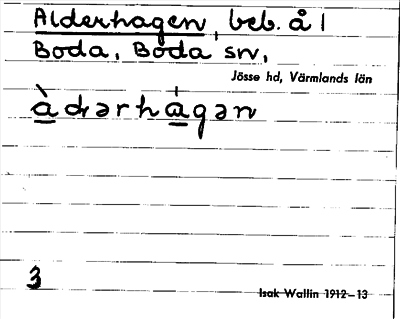 Alderhagen, beb. å 1
Boda, Boda sn,
Jösse hd, Värmlands län
àdərhágən
3
Isak Wallin 1912–13